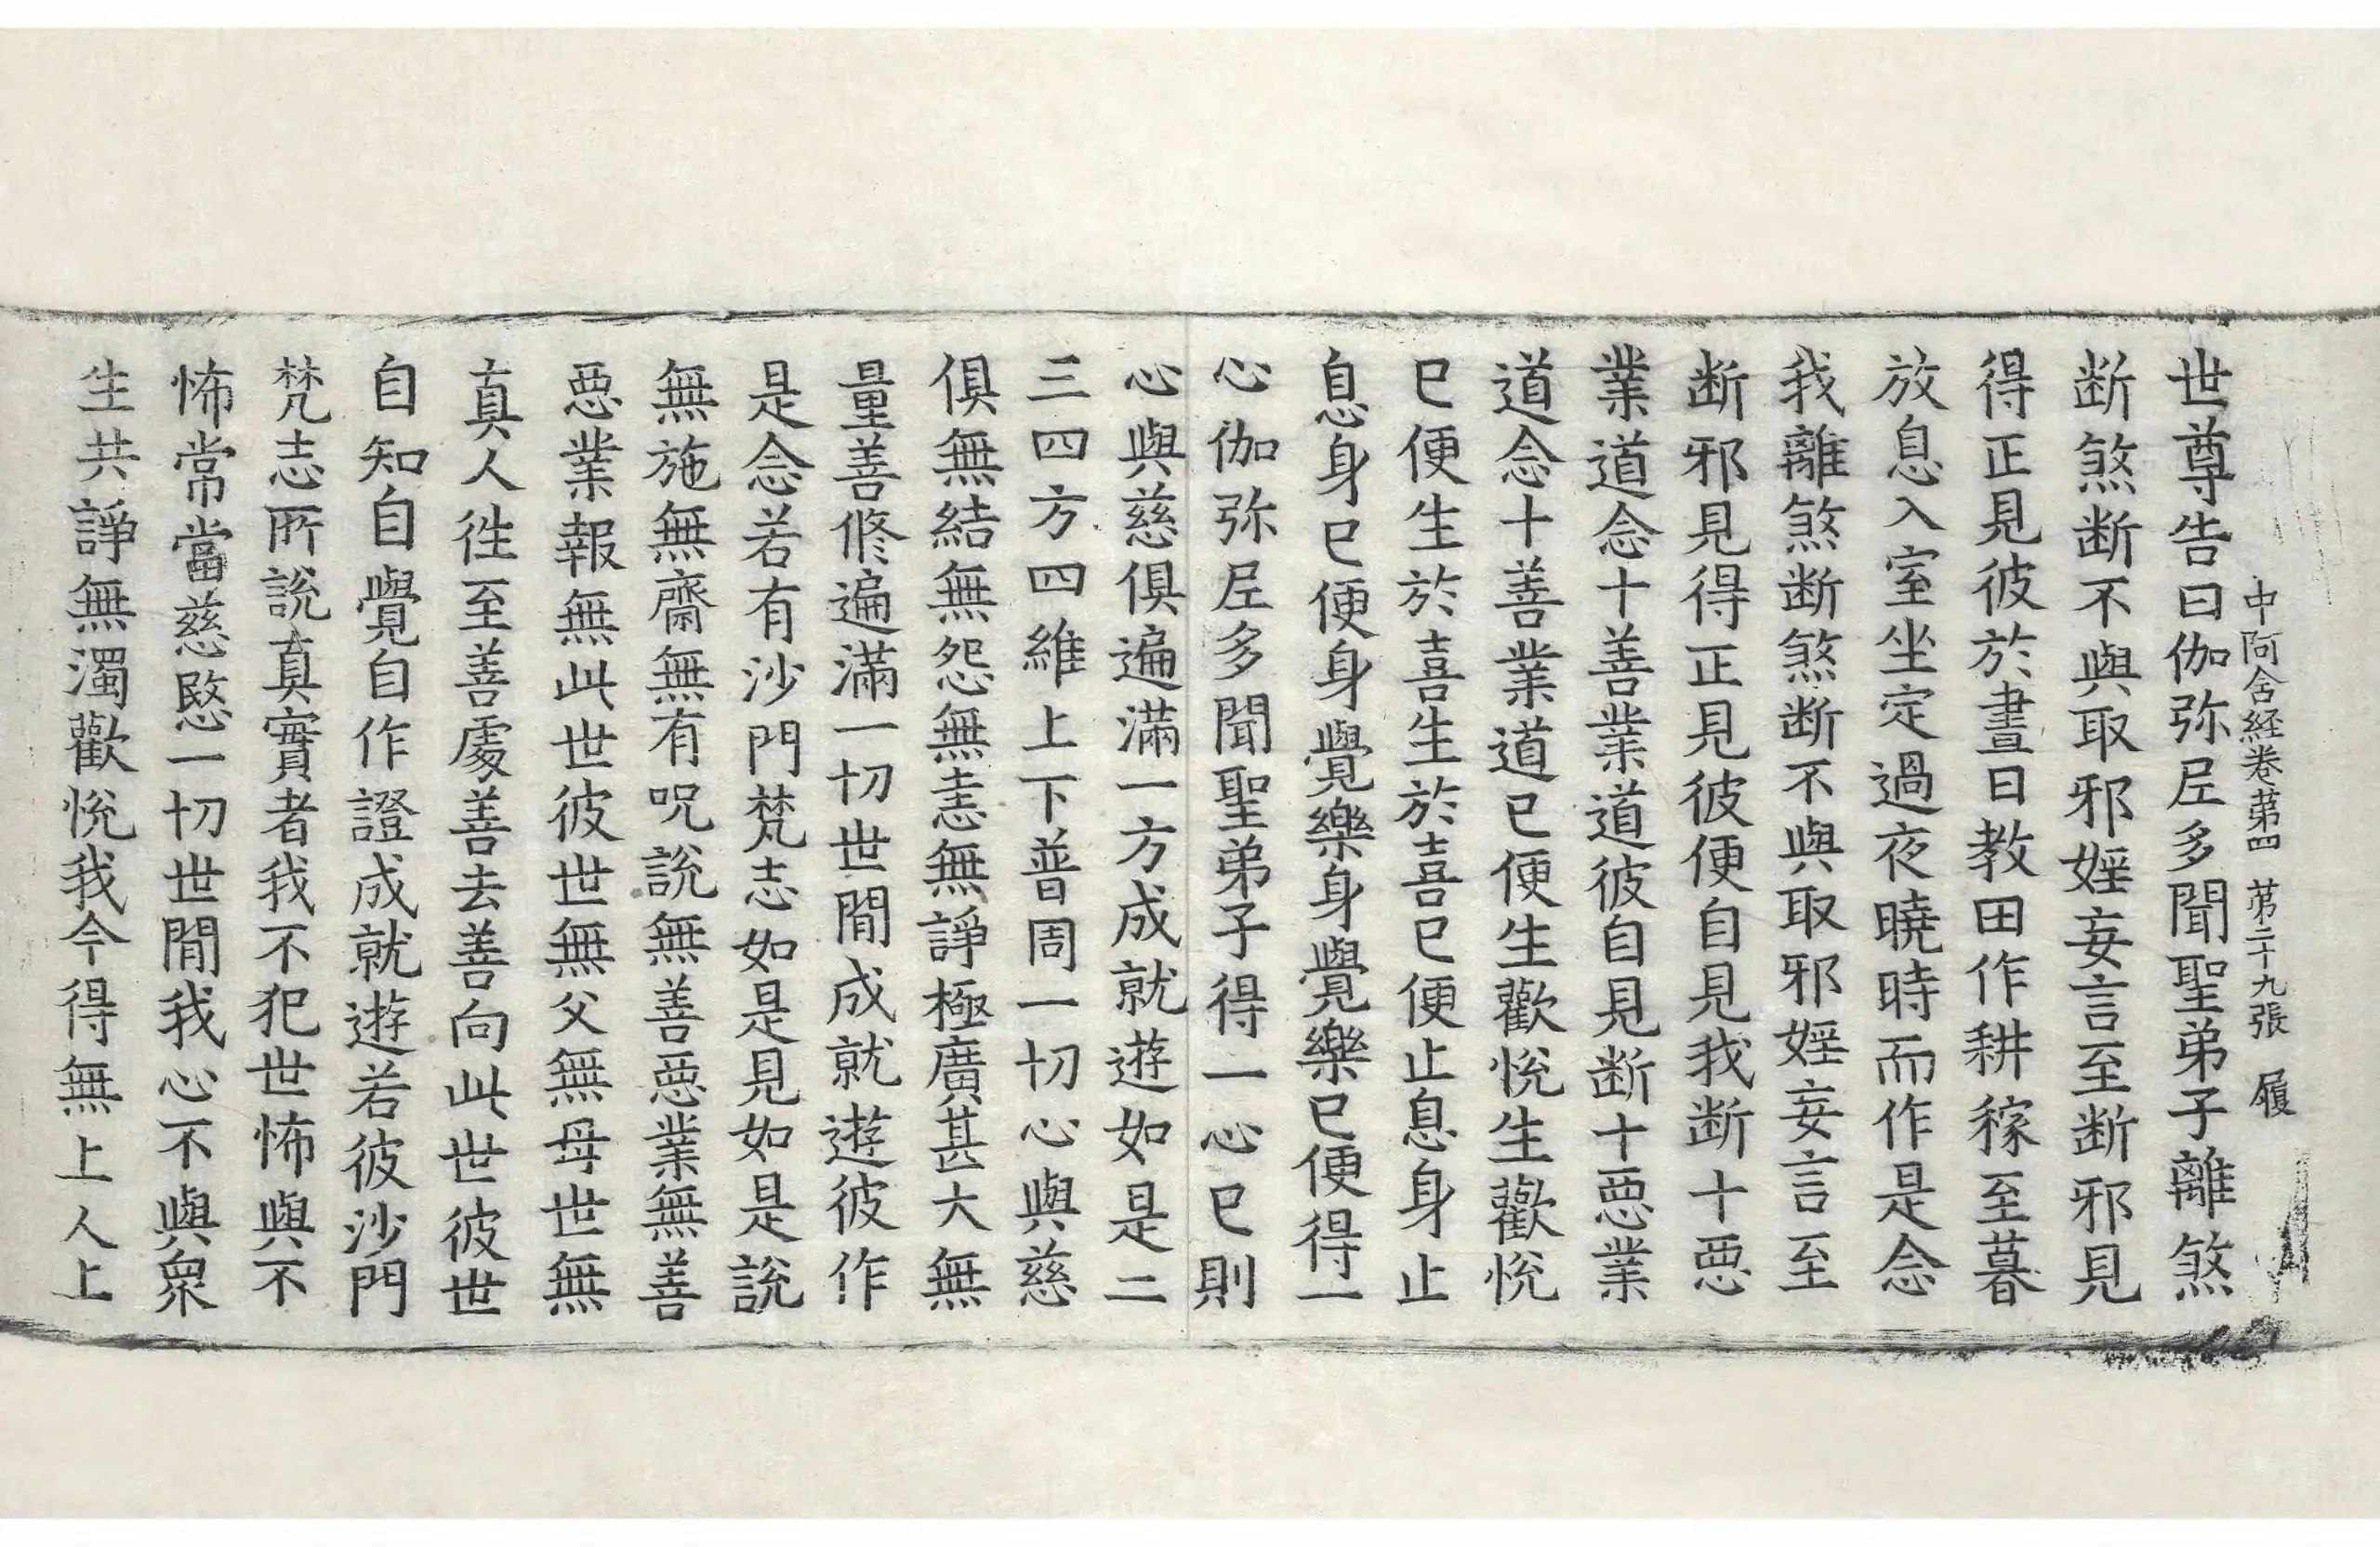 世尊告曰伽弥尼多聞聖弟子離煞
中阿含経卷苐四 苐二十九張 履
断煞断不與取邪婬妄言至断邪見
得正見彼於晝日教田作耕稼至暮
放息入室坐定過夜曉時而作是念
我離煞断煞断不與取邪婬妄言至
断邪見得正見彼便自見我断十惡
業道念十善業道彼自見断十惡業
道念十善業道已便生歡悅生歡悅
已便生於喜生於喜已便止息身止
息身已便身覺樂身覺樂已便得一
心伽弥尼多聞聖弟子得一心已則
心與慈俱遍滿一方成就遊如是二
三四方四維上下普周一切心與慈
俱無結無怨無恚無諍極廣甚大無
量善修遍滿一切世閒成就遊彼作
是念若有沙門梵志如是見如是說
無施無齋無有呪說無善惡業無善
惡業報無此世彼世無父無母世無
真人徃至善處善去善向此世彼世
自知自覺自作證成就遊若彼沙門
梵志所說真實者我不犯世怖與不
怖常當慈愍一切世閒我心不與衆
生共諍無濁歡悅我今得無上人上